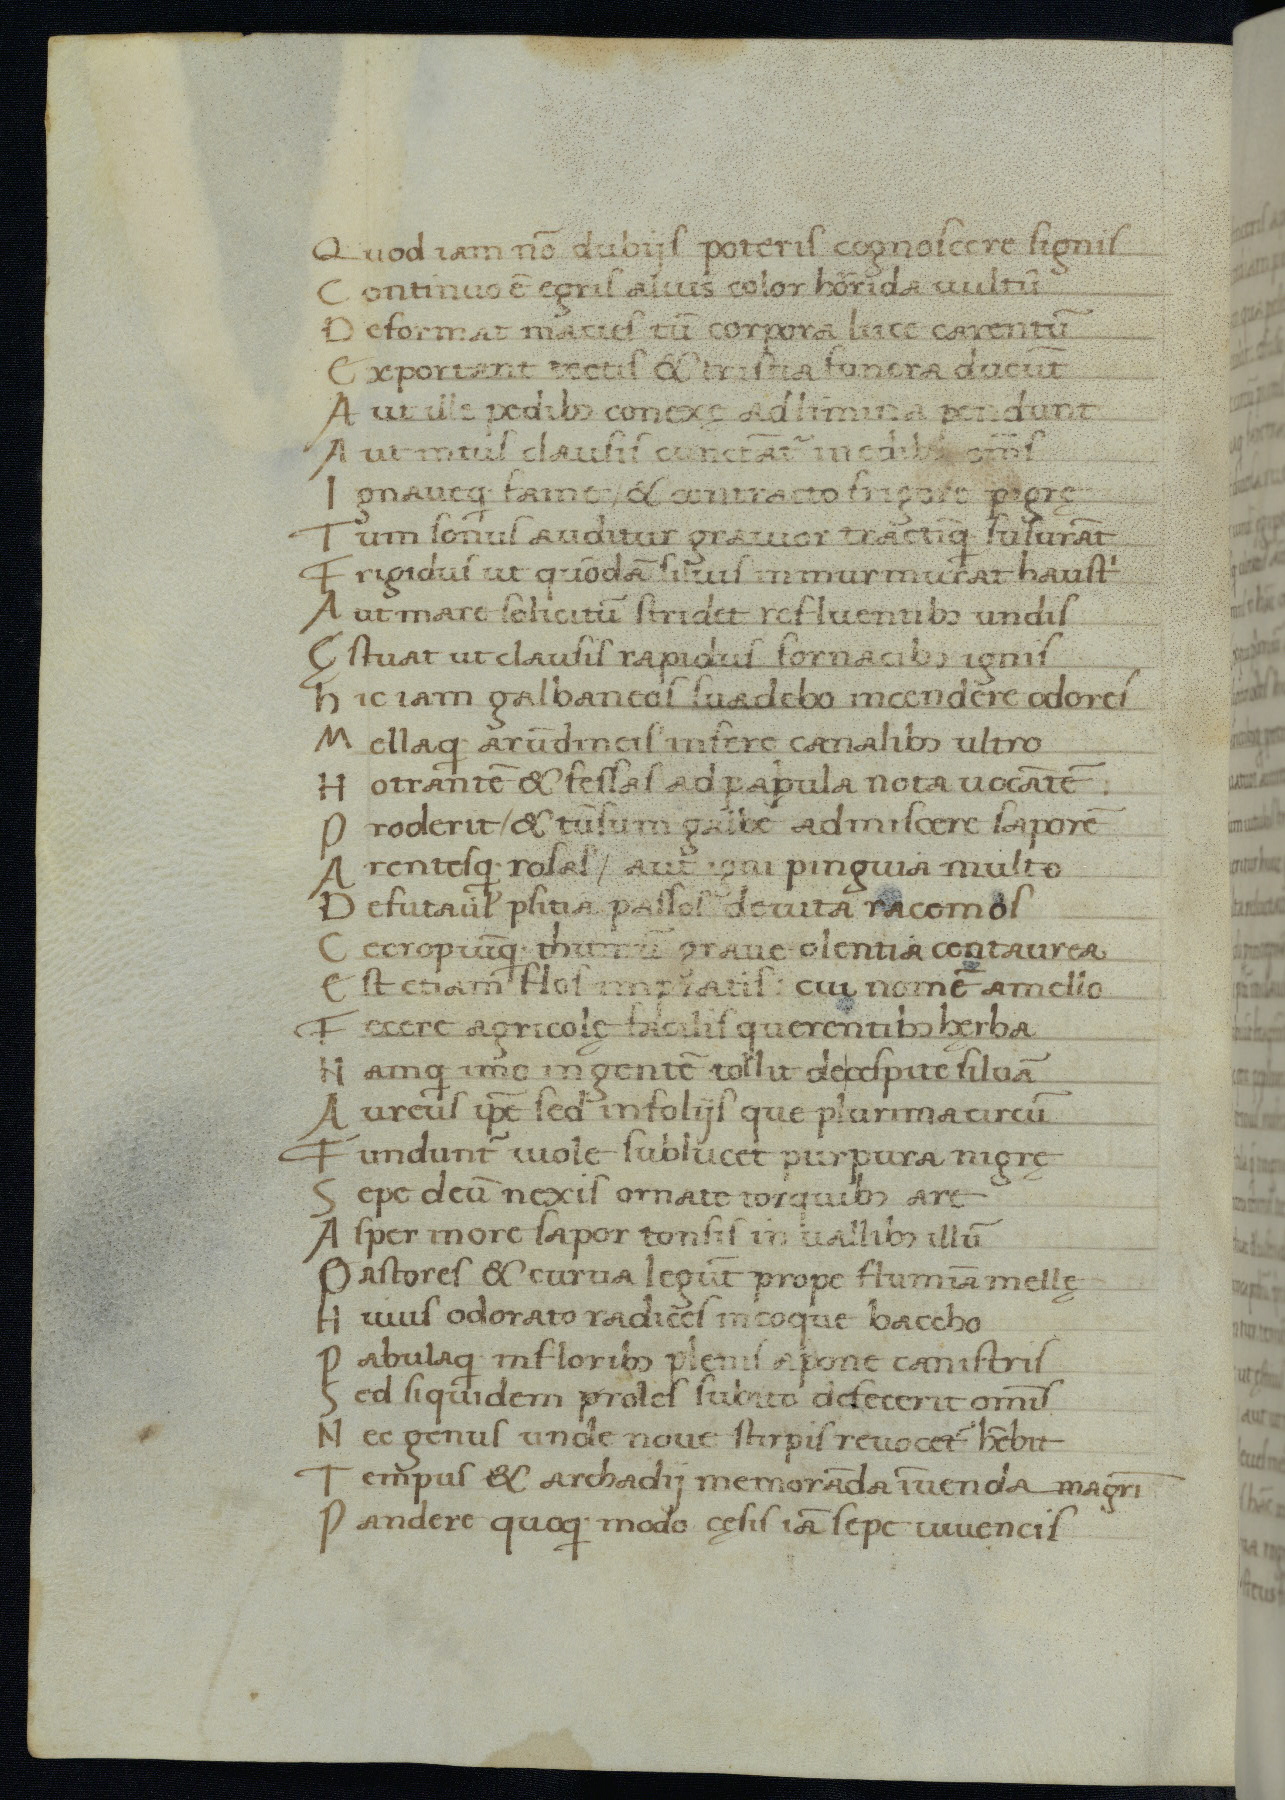 Quod iam nō dubijs poteris cognoscere signis
Continuo ē egris alius color horrida uultū
Deformat macies tū corpora luce carentū
Exportant tectis & tristia funera ducūt
Aut ille pedibɜ conexę ad limina pendunt
Aut intus clausis cunctāt̄ in edibɜ om̄s
Ignaueqꝫ fame / & contracto frigore pigrę
Tum sonus auditur grauior tractīqꝫ susurāt
Frigidus ut quōdā siluis inmurmurat haust᾽
Aut mare solicitū stridet refluentibɜ undis
Ęstuat ut clausis rapidus fornacibɜ ignis
hic iam galbaneos suadebo incendere odores
Mellaqꝫ arūdineis inferre canalibɜ ultro
Hotrantē & fessas ad pabula nota uocātē
Proderit / & tūsum galle admiscere saporē
Arentesqꝫ rosas / aut igni pinguia multo
Defuta uel psitia passos de uita racemos
Cecropiūqꝫ thimū graue olentia centaurea
Est etiam flos inpratis : cui nomē amello
Fecere agricolę facilis querentibɜ hęrba
Namqꝫ imo ingentē tollit decespite siluā
Aureus ip̄e sed infolijs que plurima circū
Fundunt̄ uiole sublucet purpura nigrę
Sepe deū nexis ornate torquibɜ are
Asper in ore sapor tonsis in uallibɜ illū
Pastores & curua legūt prope flumīa mellę
Huius odorato radices incoque baccho
Pabulaqꝫ infloribɜ plenis apone canistris
Sed siquidem proles subito defecerit om̄is
Nec genus unde noue stirpis reuocet̄ hēbit
Tempus & archadij memorāda īuenda magrī
Pandere quoqꝫ modo cęsis iā sepe iuuencis